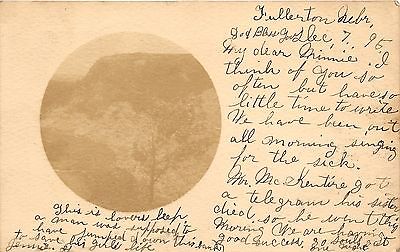 Fullerton Nebr,
Dec, 7, 95,
My dear Minnie. I
think of you so
often but have so
little time to write
We have been out
all morning singing
for the sick.
Mr. McKentire got
a telegram his sister
died, so he went this
Morning We are having
Good success, 20 souls
This is lovers leep
a man was supposed
to have jumped down this
to save his girls life
Jennie